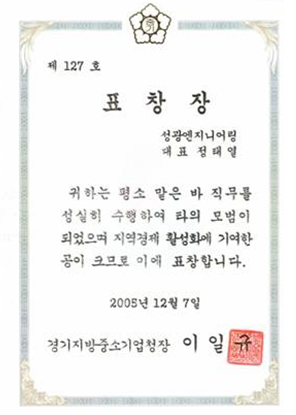 제 127 호
표 창 장
성광엔지니어링
대 표 정 태 열
귀하는 평소 맡은 바 직무를
성실히 수행하여 타의 모범이
되었으며 지역경제 활성화에 기여한
공이 크므로 이에 표창합니다.
2005년 12월 7일
경기지방중소기업청장 이 일 규